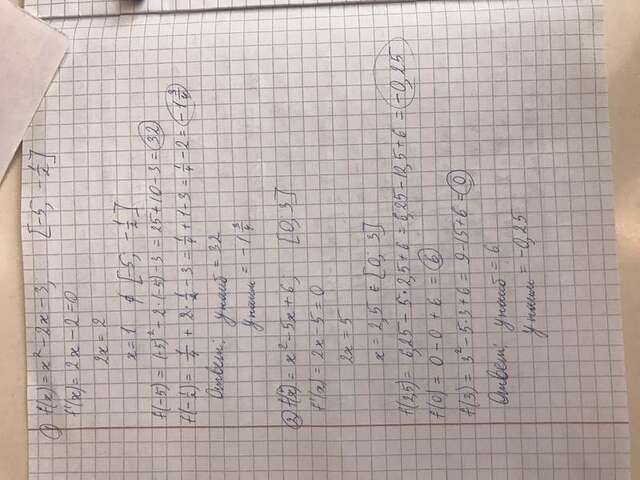 1) f(x) = x² - 2x - 3, [-5, -1/2]
f'(x) = 2x - 2 = 0
2x = 2
x = 1 ∉ [-5, -1/2]
f(-5) = (-5)² + 2·(-5) - 3 = 25 + 10 - 3 = 32
f(-1/2) = 1/4 + 2·1/2 - 3 = 1/4 + 1 - 3 = 1/4 - 2 = -1 3/4
Ответ: yнаиб = 32
yнаим = -1 3/4
2) f(x) = x² - 5x + 6; [0, 3]
f'(x) = 2x 5 = 0
2x = 5
x = 2,5 ∈ [0, 3]
f(2,5) = 6,25 - 5·2,5 + 6 = 6,25 - 12,5 + 6 = -0,25
f(0) = 0 - 0 + 6 = 6
f(3) = 3² - 5·3 + 6 = 9 - 15 + 6 = 0
Ответ: yнаиб = 6
yнаим = -0,25